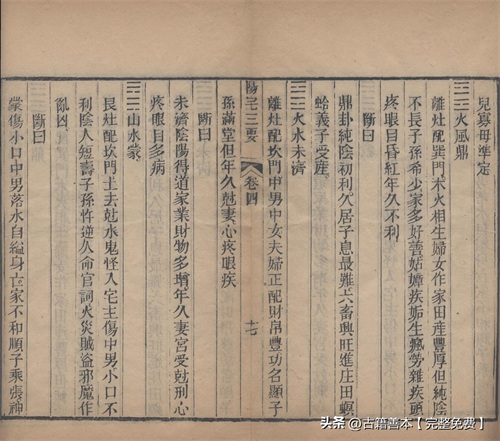 兒寡母準定
三三火風鼎
離灶配巽門木火相生婦女作家田產豐厚但純陰
不長子孫希少家多好善姑嫜疾妬生瘋勞雜疾頭
疼眼目昏紅年久不利
斷曰
鼎卦純陰初利久居子息最難六畜興旺進庄田螟
蛉義子受產
三三火水未濟
離灶配坎門中男中女夫婦正配財帛豐功名顯子
孫滿堂但年久尅妻心疼眼疾
陽宅三要
卷四
十七
斷曰
未濟陰陽得道家業財物多增年久妻宮受尅刑心
疼眼目多病
三三山水蒙
艮灶配坎門土去尅水鬼怪人宅主傷中男小口不
利陰人短壽子孫忤逆仄命官詞火災賊盜邪魔作
亂凶
斷曰
蒙傷小口中男落水自縊身亡家不和順子乘張神
头条@古籍善本【完整免费】